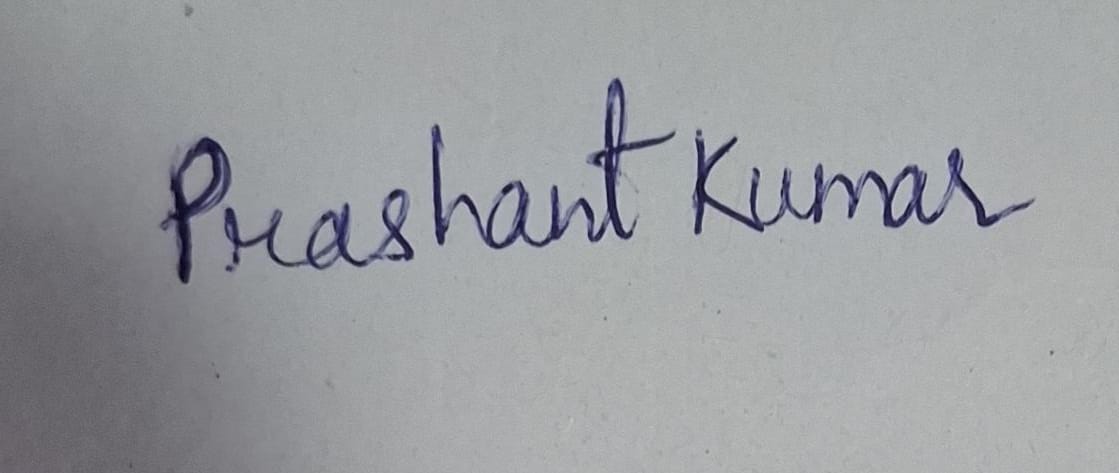 Prashant Kumar